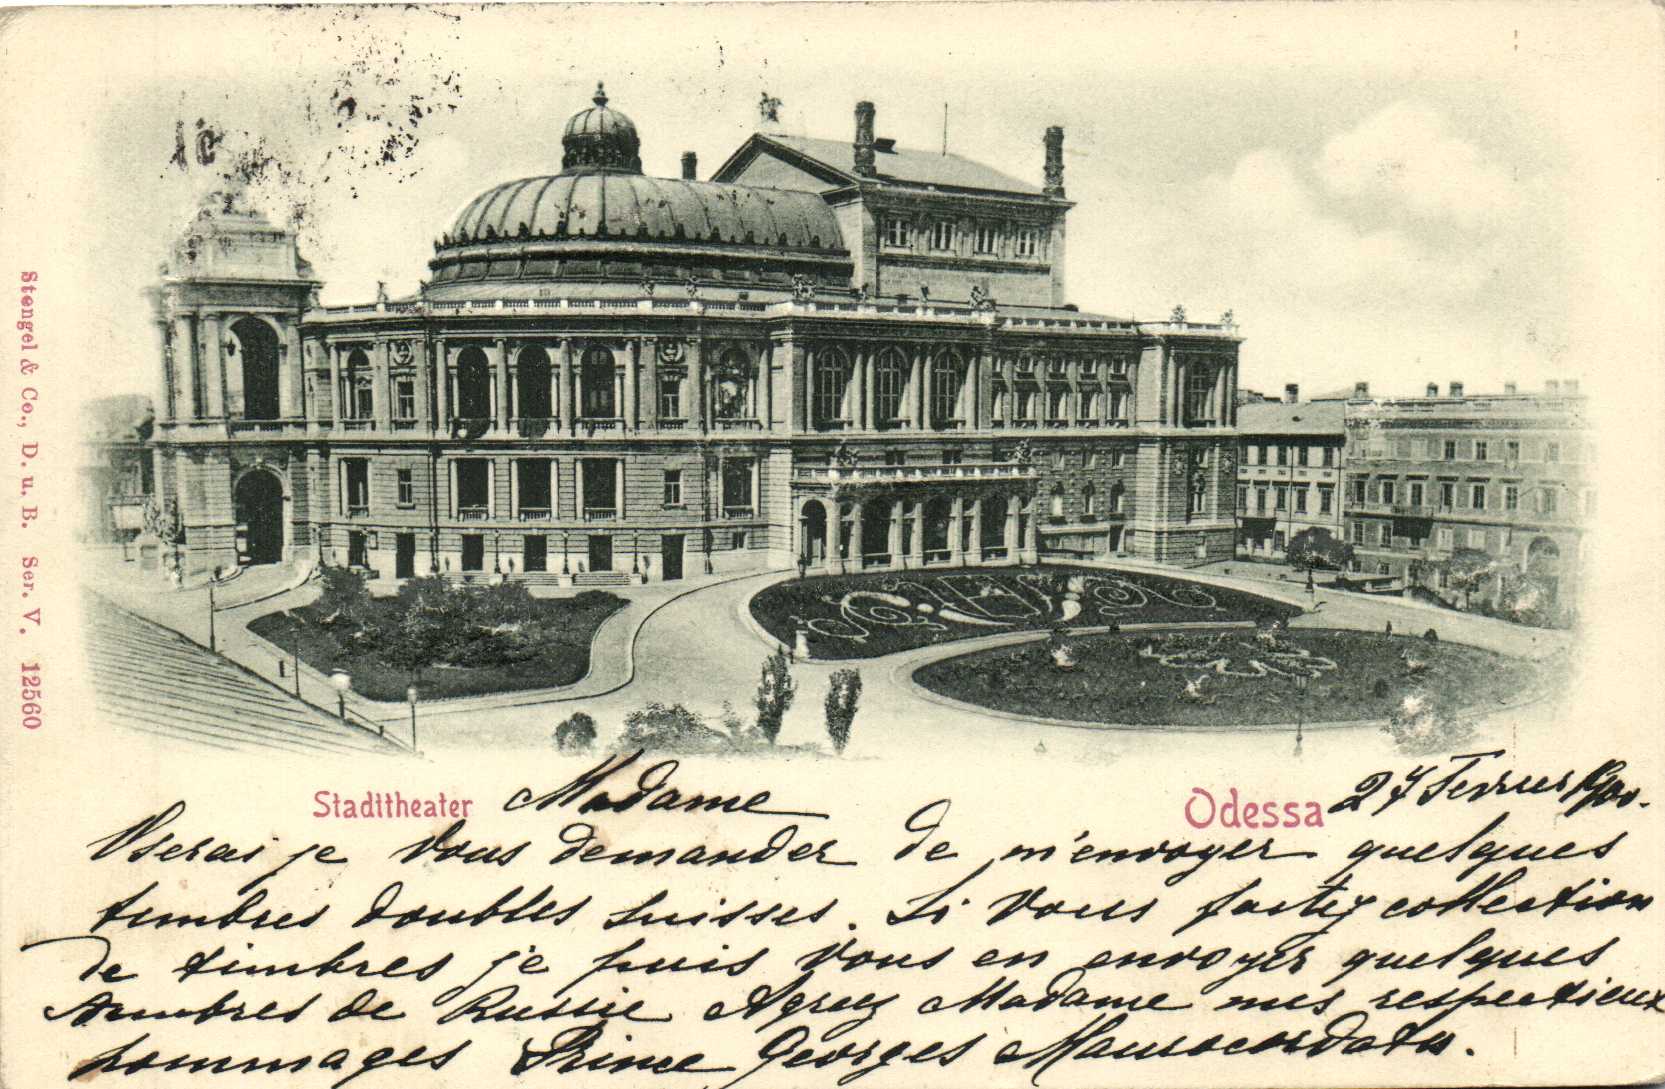 Stengel & Co., D. u. B. Ser. V. 12560
Stadttheater
Odessa
Madame
27 Fevrier 1900.
Userai je vous demander de m'envoyer quelques
timbres doubles suisses. Si vous faitez collection
de timbres je puis vous en envoyer quelques
timbres de Russie Agreez Madame mes respectieux
hommages Prince Georges Maurocordato.